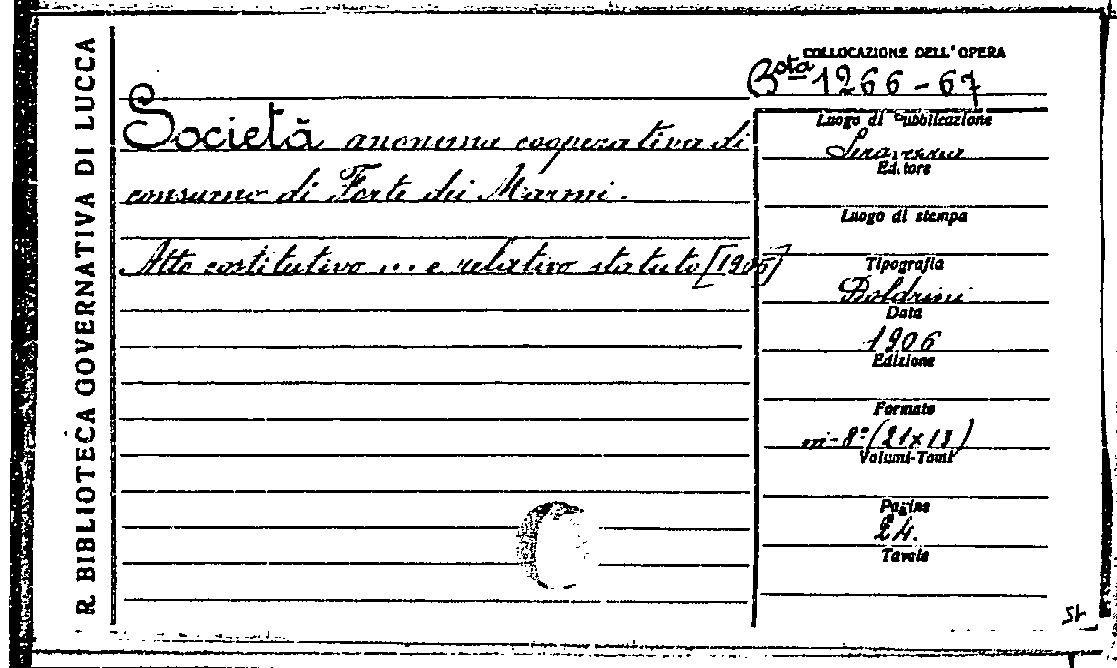 R. BIBLIOTECA GOVERNATIVA DI LUCCA
COLLOCAZIONE DELL'OPERA
Bsta 1266-67
Società anonima cooperativa di
consumo di Forte dei Marmi.
Atto costitutivo ... e relativo statuto [1905]
Luogo di Pubblicazione
Seravezza
Editore
Luogo di stampa
Tipografia
Boldrini
Data
1906
Edizione
Formato
in-8º (21x13)
Volumi-Tomi
Pagine
24.
Tavole